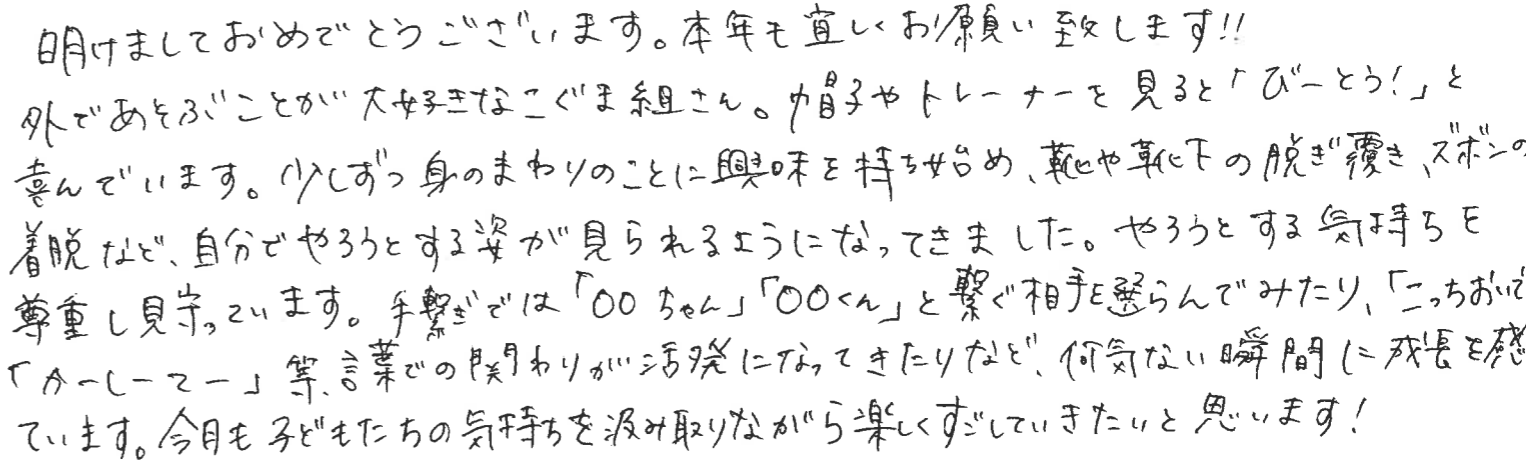 明けましておめでとうございます。本年も宜しくお願い致します!!
外であそぶことが大好きなこぐま組さん。帽子やトレーナーを見ると「びーとう!」と
喜んでいます。少しずつ身のまわりのことに興味を持ち始め、靴や靴下の脱ぎ履き、ズボンの
着脱など、自分でやろうとする姿が見られるようになってきました。やろうとする気持ちを
尊重し見守っています。手繋ぎでは「〇〇ちゃん」「〇〇くん」と繋ぐ相手を選らんでみたり、「こっちおいで
「かーしーてー」等、言葉での関わりが活発になってきたりなど、何気ない瞬間に成長を感
ています。今月も子どもたちの気持ちを汲み取りながら楽しくすごしていきたいと思います!